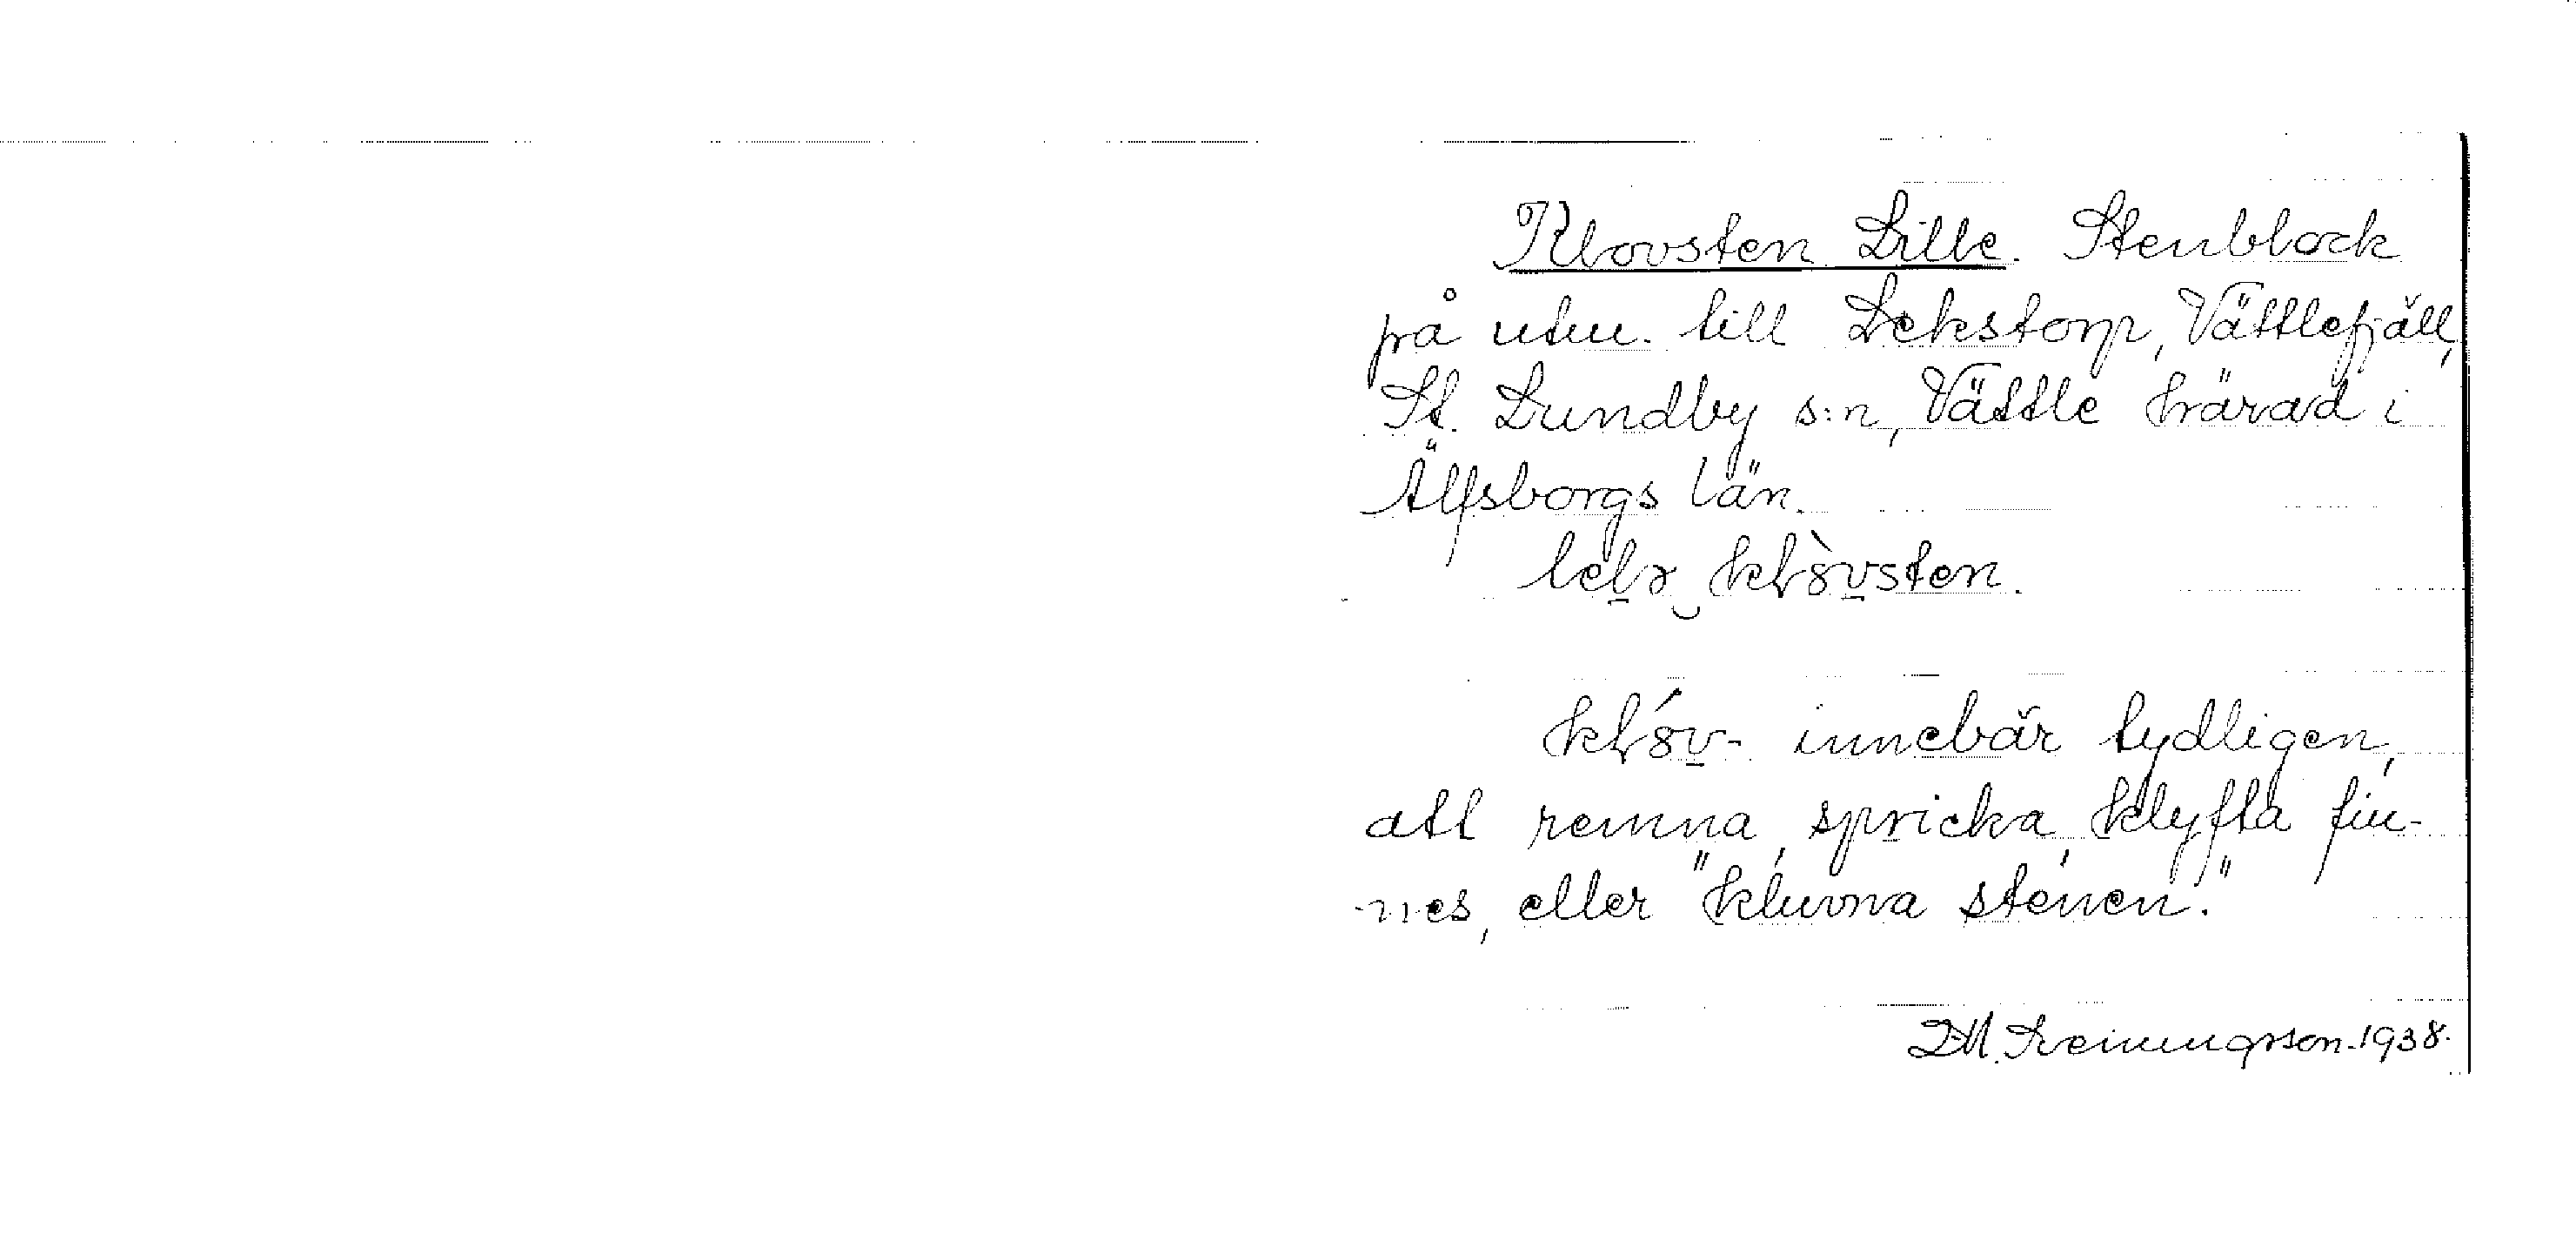 Klovsten Lille. Stenblock
på utm. till Lekstorp, Vättlefjäll,
St. Lundby s:n, Vättle härad i
Älfsborgs län.
innebär tydligen,
att remna, spricka, klyfta fin-
-nes, eller "kluvna stenen."
1938.